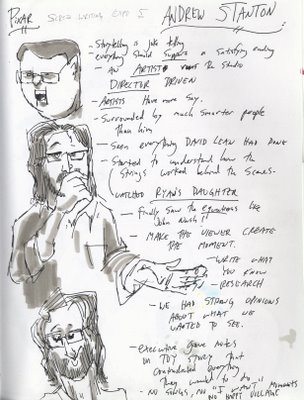 PIXAR
SCREEN WRITING EXPO 5
ANDREW STANTON
- Storytelling is joke telling
- everything should support a satisfying ending
- AN ARTIST the Studio
DIRECTOR DRIVEN
- ARTISTS Have more say.
- Surrounded by much smarter people
than him
- Seen everything DAVID LEAN HAD DONE
- Started to understand how the
strings worked behind the scenes-
- WATCHED RYAN'S DAUGHTER
- Finally saw the equations like
"John Nash!"
- MAKE THE VIEWER CREATE
THE MOMENT.
- WRITE WHAT
YOU KNOW
- RESEARCH
- WE HAD STRONG OPINIONS
ABOUT WHAT WE
WANTED TO SEE.
- executive gave notes
on TOY STORY that
contradicted everything
they wanted to do -
- NO SONGS, NO "I WANT" MOMENTS
NO HAPPY VILLAGE